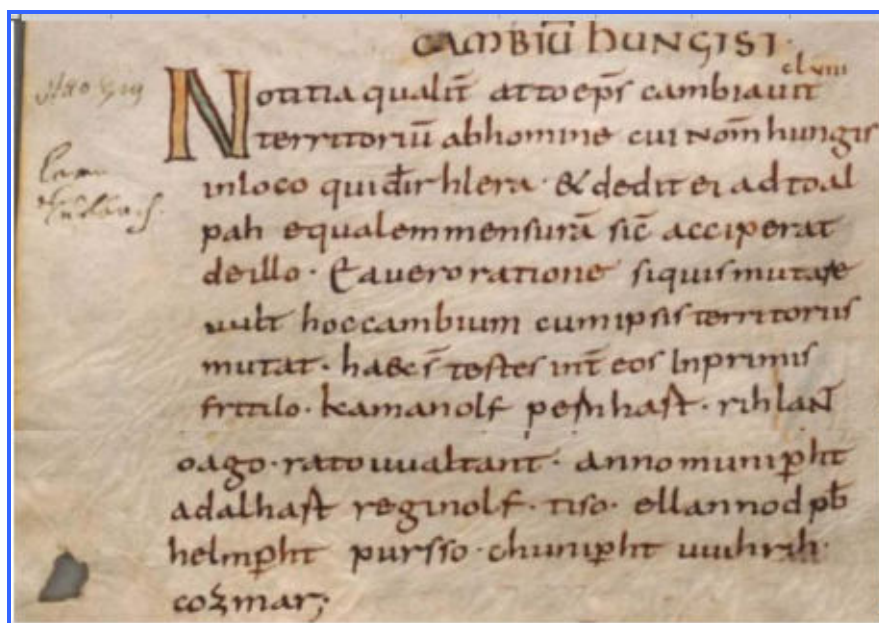 CAMBIŪ hUNGISI·
clviiii
Notitia qualit̄ atto ep̄s cambiauit
territoriū ab homine cui nom̄ hungis
in loco qui dr̄ hlera · & dedit ei ad toal
pah equalem mensurā sic̄ acciperat
de illo · Ea uero ratione si quis mutare
uult hoc cambium cum ipsis territoriis
mutat · haec s̄ testes int̄ eos Inprimis
fritilo · kamanolf pernhast · rihlaN̄
oago · rato uualtant · anno munip̄ht
adalhast reginolf · tiso · ellannod pb̄
helmp̄ht pursso · chunip̄ht uuihrih ·
cozmar;